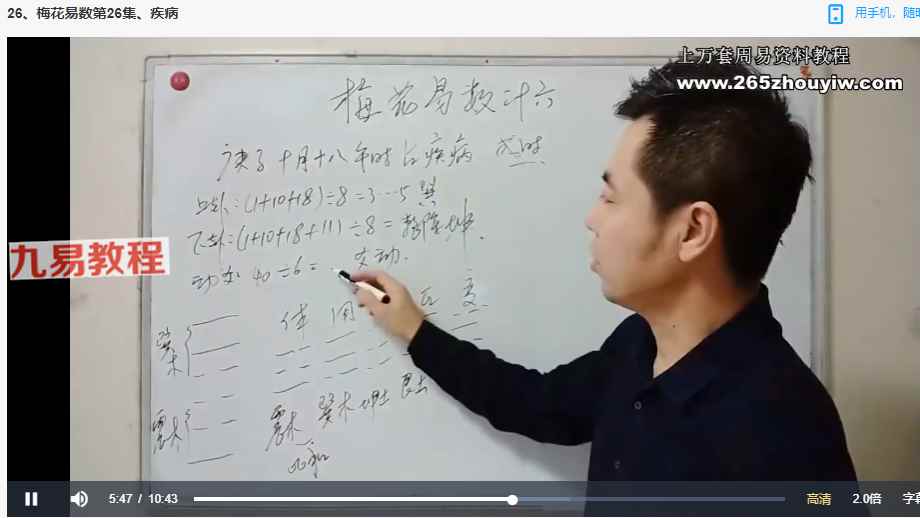 26、梅花易数第26集、疾病
用手机，随时
上万套周易资料教程
www.265zhouyiw.com
梅花易数廿六
庚子十月十八 年时占疾病 戌时
上卦:(1+10+18)÷8=3…5 巽
下卦:(1+10+18+11)÷8=
动爻 40÷6= 爻动.
九易教程
体 用 互 变
巽木
震木
震木 巽木 坤土 艮土
5:47 / 10:43
高清 2.0倍 字幕